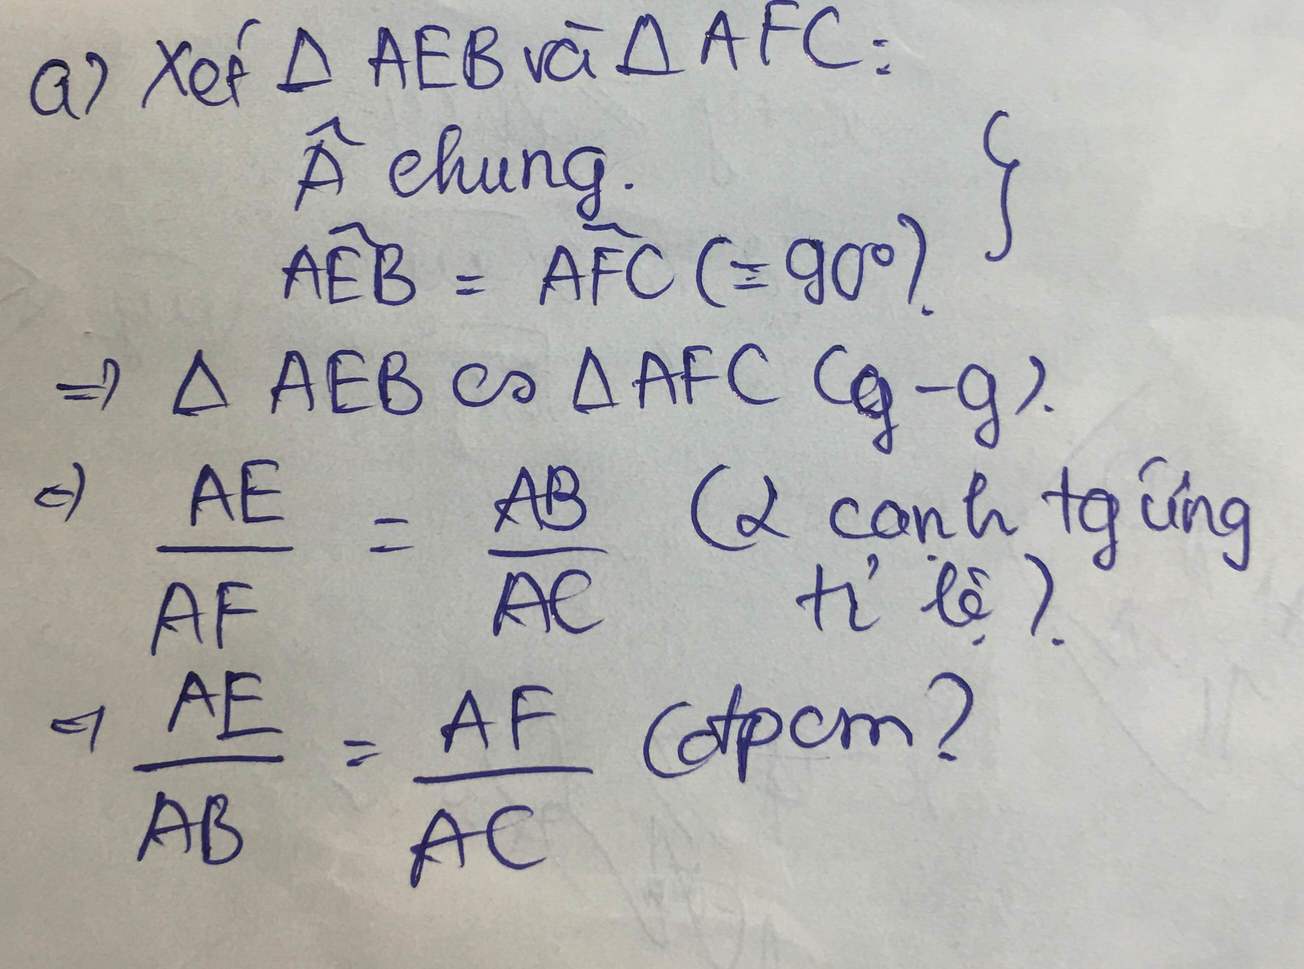 a) Xét Δ AEB và Δ AFC:
Â chung.
AÊB = AF̂C (= 90°).
=> Δ AEB ∽ Δ AFC (g-g).
=> AE/AF = AB/AC (2 cạnh tg ứng
tỉ lệ).
=> AE/AB = AF/AC (đpcm)